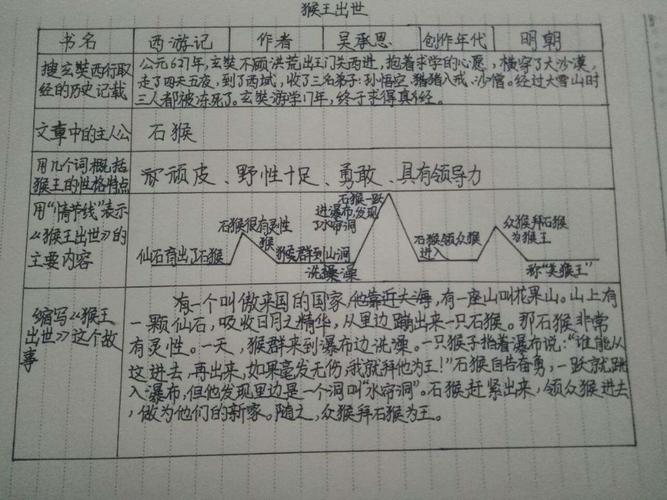 猴王出世
书名 西游记 作者 吴承恩 创作年代 明朝
搜玄奘西行取
经的历史记载
公元627年,玄奘不顾洪荒出玉门关西进,抱着求学的心愿,横穿了大沙漠,
走了四天五夜,到了西域,收了三名弟子:孙悟空、猪八戒、沙僧。经过大雪山时
三人都被冻死了。玄奘游学17年,终于求得真经。
文章中的主人公 石猴
用几个词概括
猴王的性格特点
顽皮、野性十足、勇敢、具有领导力
用“情节线”表示
《猴王出世》的
主要内容
仙石育出了石猴
石猴很有灵性
猴群到山涧
洗澡
石猴一跃
进瀑布,发现
了水帘洞
石猴领众猴
进入
众猴拜石猴
为猴王
称“美猴王”
缩写《猴王
出世》这个故
事
有一个叫傲来国的国家,他靠近大海,有一座山叫花果山。山上有
一颗仙石,吸收日月之精华,从里边蹦出来一只石猴。那石猴非常
有灵性。一天,猴群来到瀑布边洗澡。一只猴子指着瀑布说:“谁能从
这进去,再出来,如果毫发无伤,我就拜他为王!”石猴自告奋勇,一跃就跳
入瀑布,但他发现里边是一个洞叫“水帘洞”。石猴赶紧出来,领众猴进去
,做为他们的新家。随之,众猴拜石猴为王。